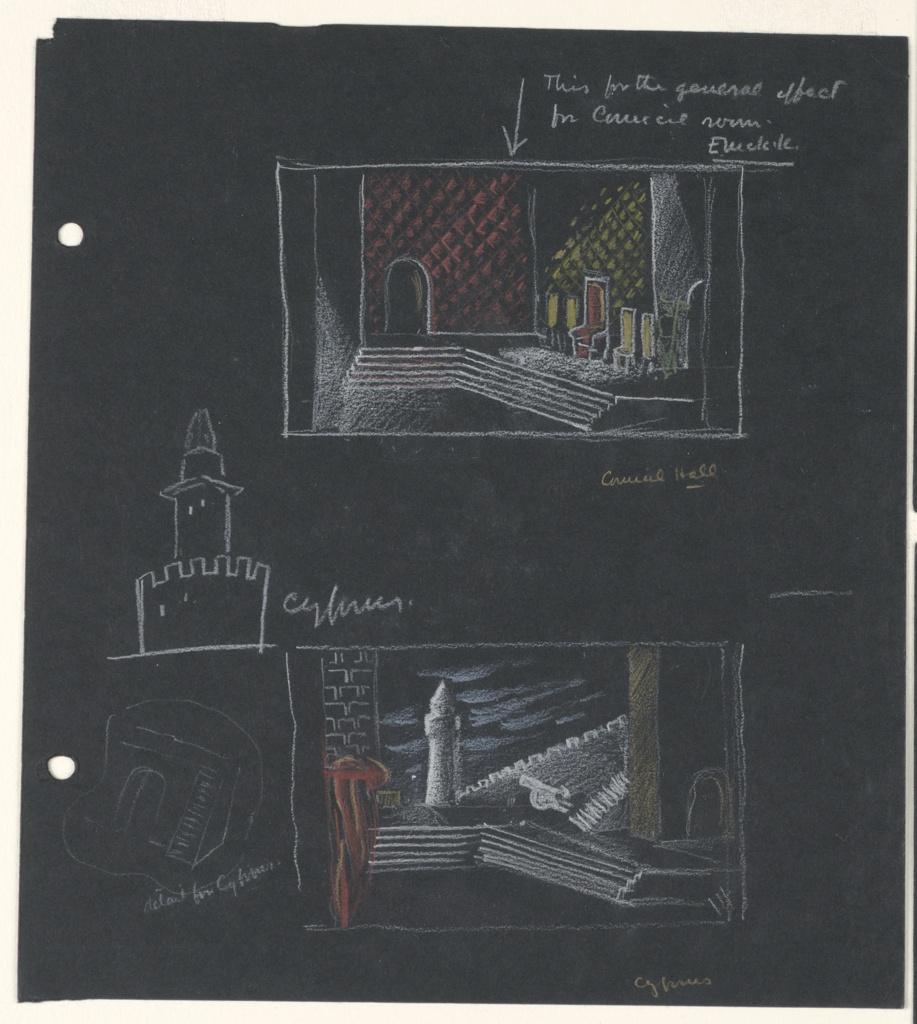 This for the general effect
for Council room.
Council Hall
Cyprus.
detail for Cyprus.
Cyprus